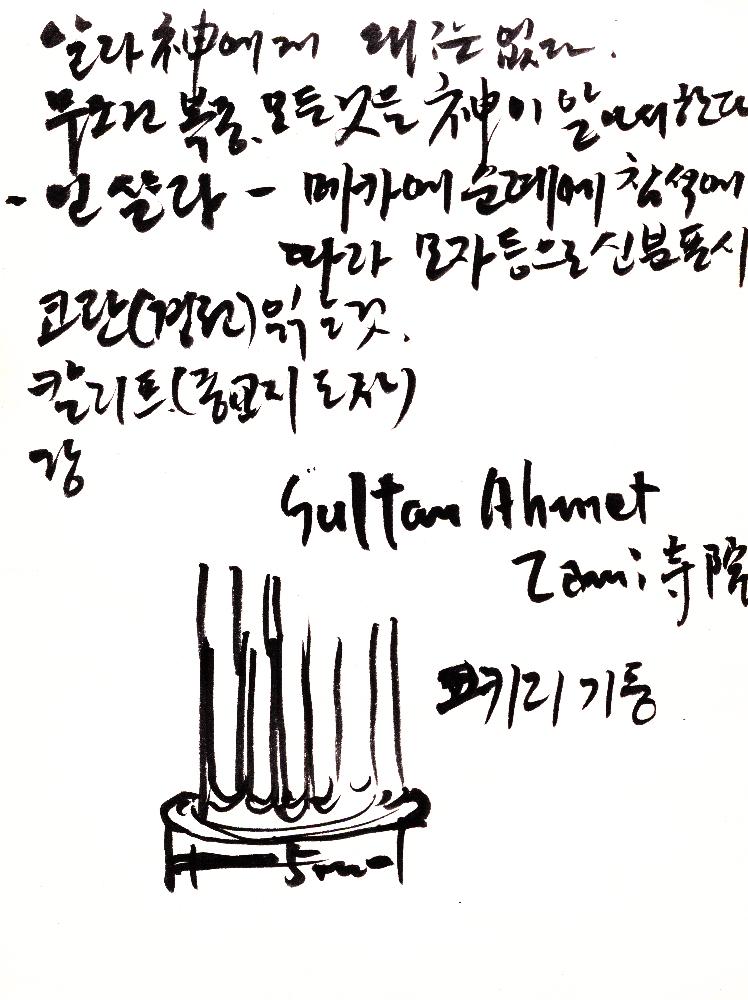 알라神에게 왜는 없다.
무조건 복종. 모든것을 神이 알아서 한다
- 인샬라 - 메카에 순례에 참석에
따라 모자등으로 신분표시
코란(경전)읽는것.
칼리프(종교지도자)
강
Sultan Ahmet
Zami 寺院
코키리 기둥
5m